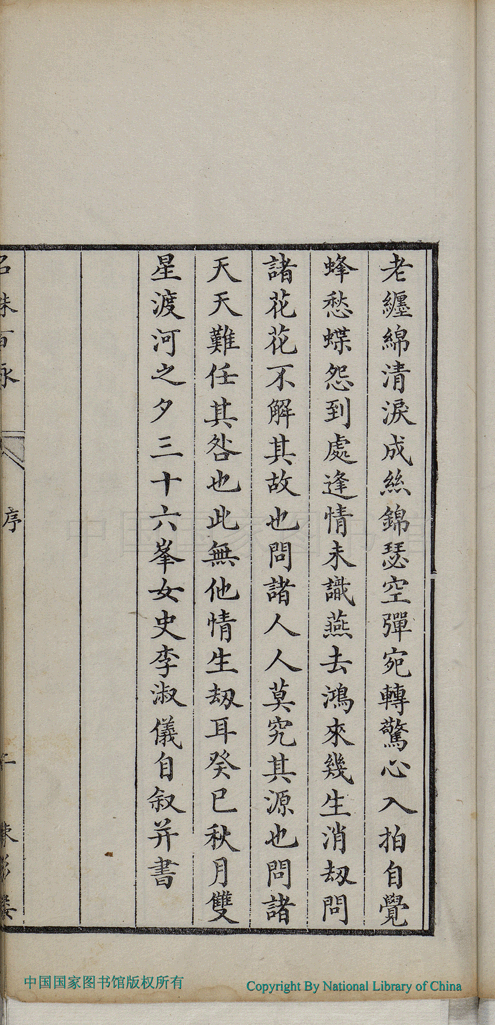 老纏綿清淚成絲錦瑟空彈宛轉驚心入拍自覺
蜂愁蝶怨到處逢情未識燕去鴻來幾生消刼問
諸花花不解其故也問諸人人莫究其源也問諸
天天難任其咎也此無他情生刼耳癸巳秋月雙
星渡河之夕三十六峯女史李淑儀自叙并書
名姝百詠
序
中国国家图书馆
中国国家图书馆版权所有
Copyright By National Library of China